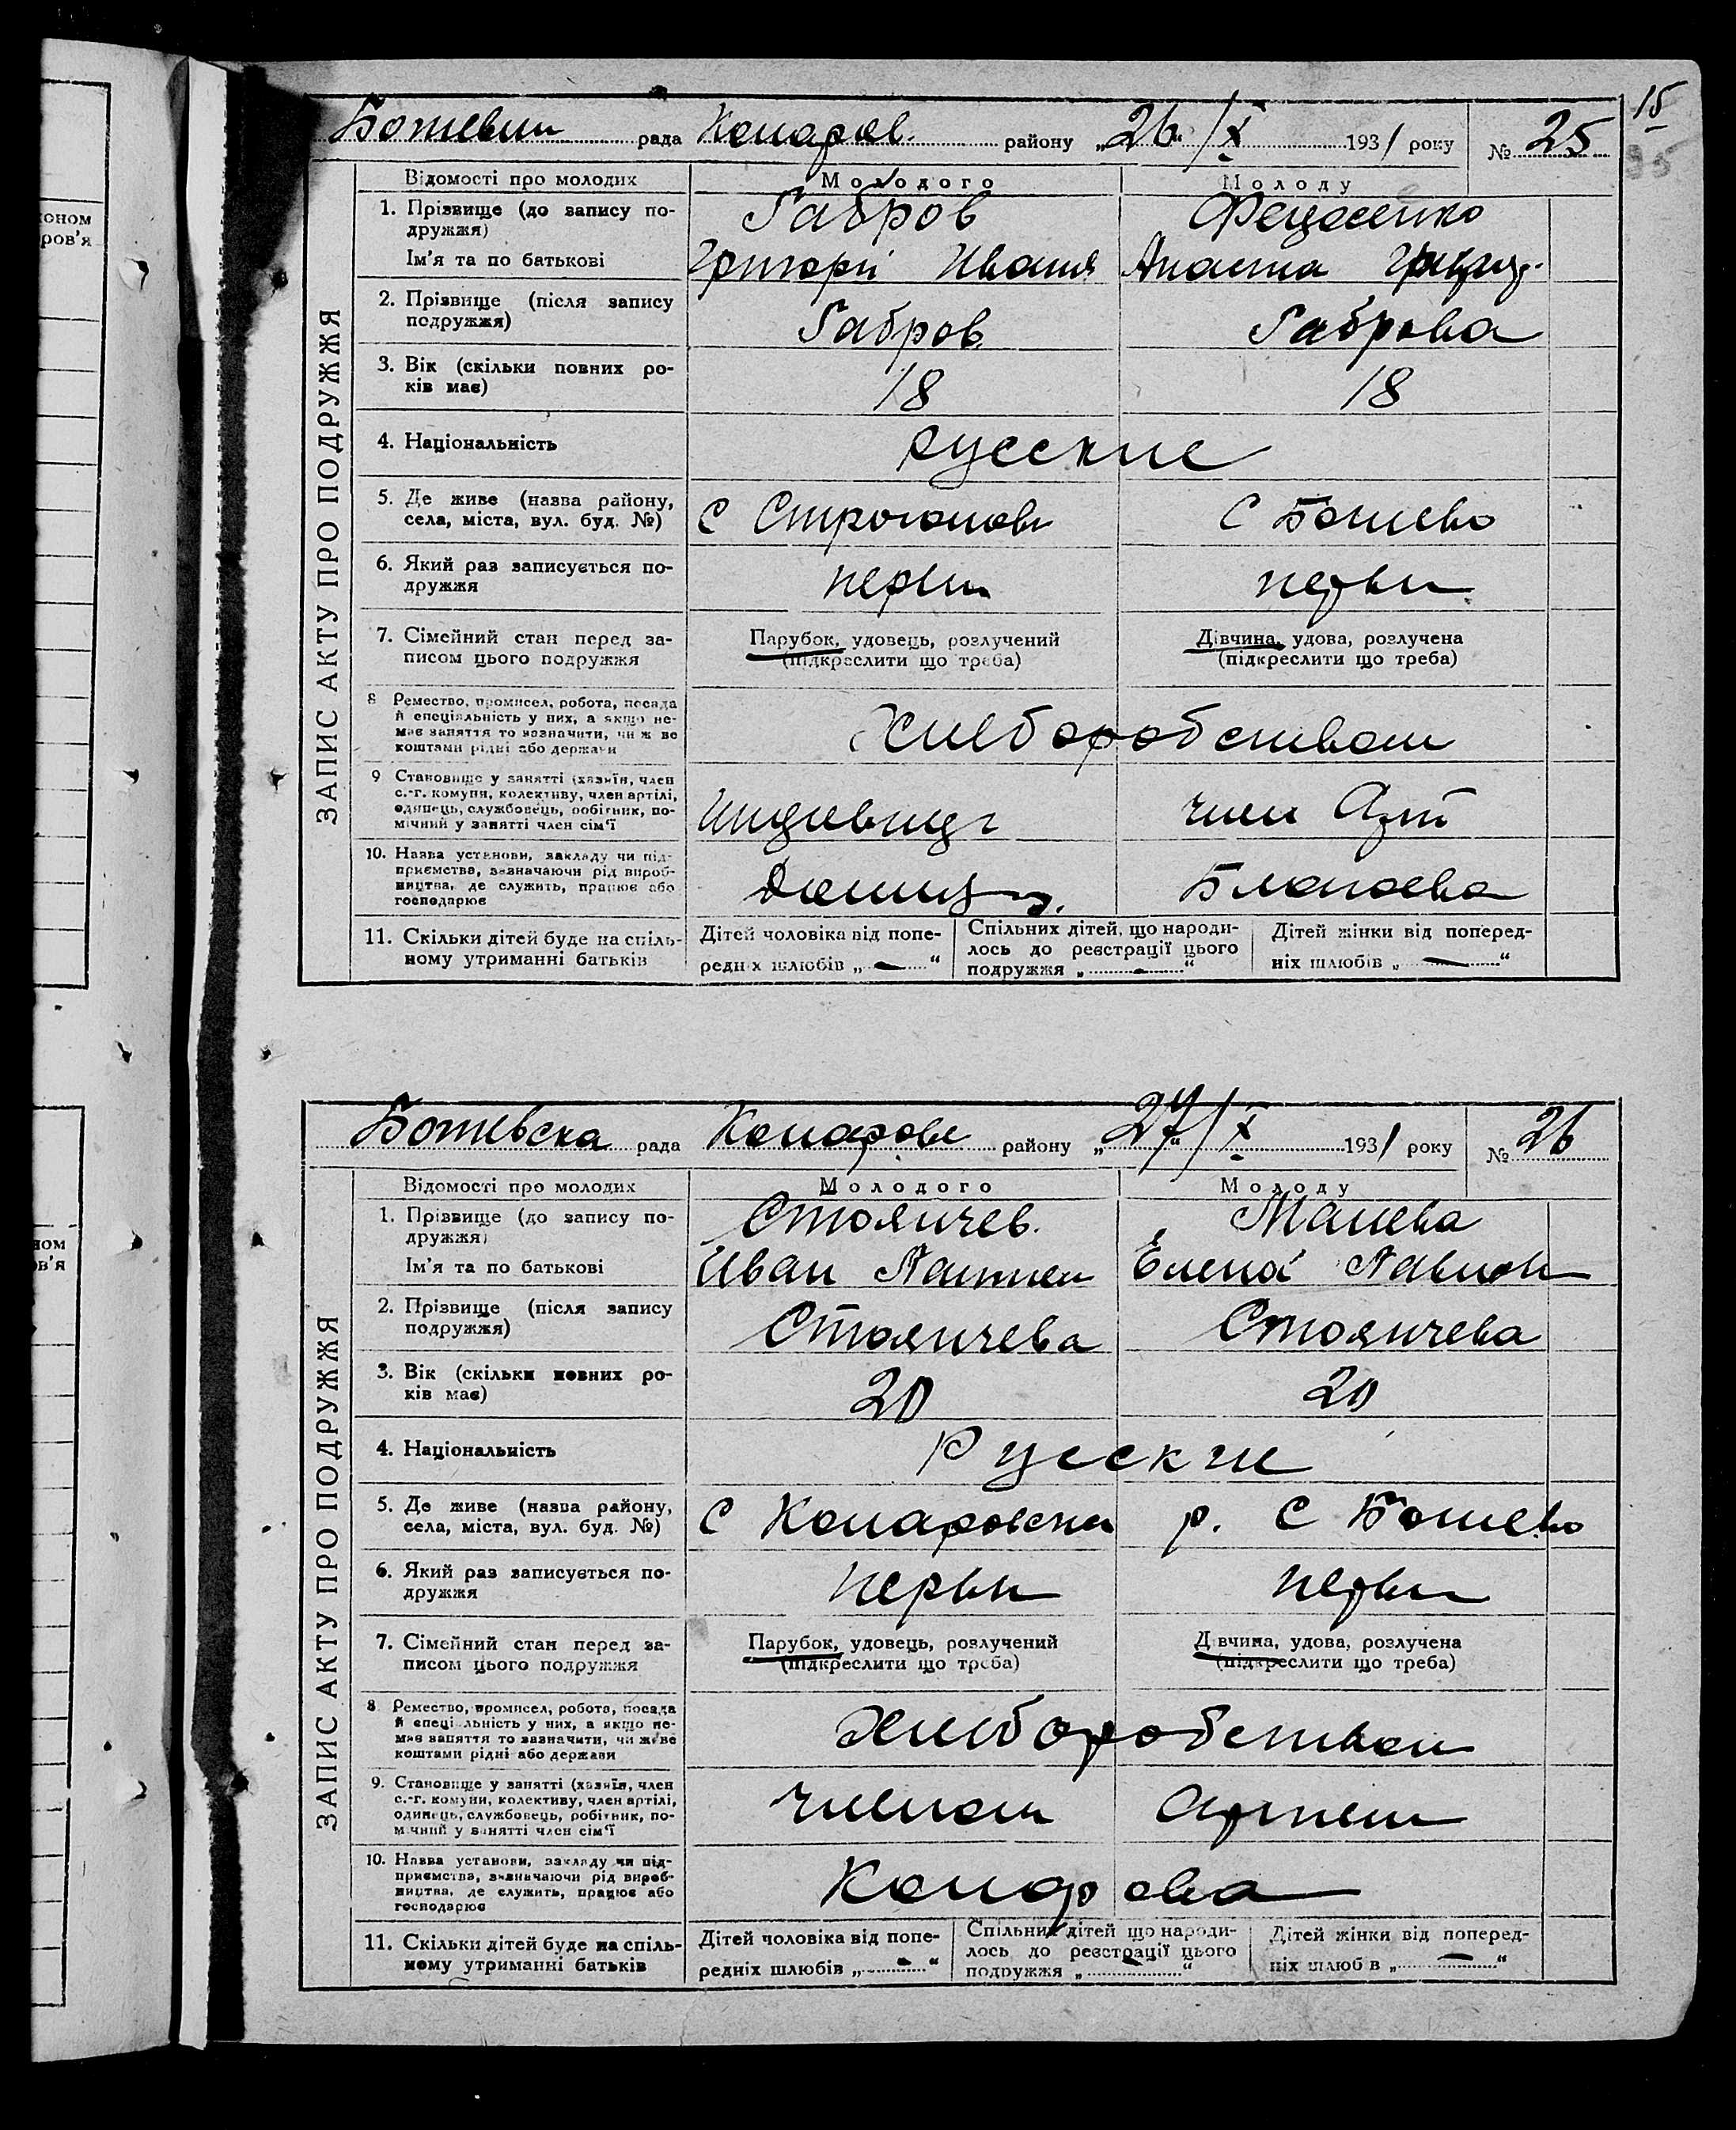 оном
ров'я
ном
ов'я
15
Ботевск рада Комаров. району „26“/X 1931 року № 25
ЗАПИС АКТУ ПРО ПОДРУЖЖЯ
Відомості про молодих Молодого Молоду
1. Прізвище (до запису по-
дружжя) Габров
Ім'я та по батькові Григорій Иванов
2. Прізвище (після запису
подружжя) Габров Габрова
3. Вік (скільки повних ро-
ків має) 18 18
4. Національність русские
5. Де живе (назва району,
села, міста, вул. буд. №) с Строганов с Ботево
6. Який раз записується по-
дружжя первы первы
7. Сімейний стан перед за-
писом цього подружжя
Парубок, удовець, розлучений
(підкреслити що треба)
Дівчина, удова, розлучена
(підкреслити що треба)
8 Ремество, промисел, робота, посада
й спеціяльність у них, а якщо не-
має заняття то зазначити, чи ж ве
коштами рідні або держави
Хлеборобством
9 Становище у занятті (хазяїн, член
с.-г. комуни, колективу, член артілі,
одинець, службовець, робітник, по-
мічний у занятті член сім'ї
член Арт
10. Назва установи, закладу чи під-
приємства, зазначаючи рід вироб-
ництва, де служить, працює або
господарює
11. Скільки дітей буде на спіль-
ному утриманні батьків
Дітей чоловіка від попе-
редніх шлюбів „ — “
Спільних дітей, що народи-
лось до реєстрації цього
подружжя „ - “
Дітей жінки від поперед-
ніх шлюбів „ — “
Ботевска рада Комарове району „27“/X 1931 року № 26
ЗАПИС АКТУ ПРО ПОДРУЖЖЯ
Відомості про молодих Молодого Молоду
1. Прізвище (до запису по-
дружжя) Стоянчев. Манева
Ім'я та по батькові Иван Елена Павлов
2. Прізвище (після запису
подружжя) Стоянчева Стоянчева
3. Вік (скільки повних ро-
ків має) 20 20
4. Національність Русские
5. Де живе (назва району,
села, міста, вул. буд. №) с Комаровски р. с Ботево
6. Який раз записується по-
дружжя первы первы
7. Сімейний стан перед за-
писом цього подружжя
Парубок, удовець, розлучений
(підкреслити що треба)
Дівчина, удова, розлучена
(підкреслити що треба)
8. Ремество, промисел, робота, посада
й спеціяльність у них, а якщо не-
має заняття то зазначити, чи живе
коштами рідні або держави
Хлеборобством
9. Становище у занятті (хазяїн, член
с.-г. комуни, колективу, член артілі,
одинець, службовець, робітник, по-
мічний у занятті член сім'ї
членом Артели
10. Назва установи, закладу чи під-
приємства, зазначаючи рід вироб-
ництва, де служить, працює або
господарює
Комарова
11. Скільки дітей буде на спіль-
ному утриманні батьків
Дітей чоловіка від попе-
редніх шлюбів „ - “
Спільних дітей що народи-
лось до реєстрації цього
подружжя „ - “
Дітей жінки від поперед-
ніх шлюб в „ — “